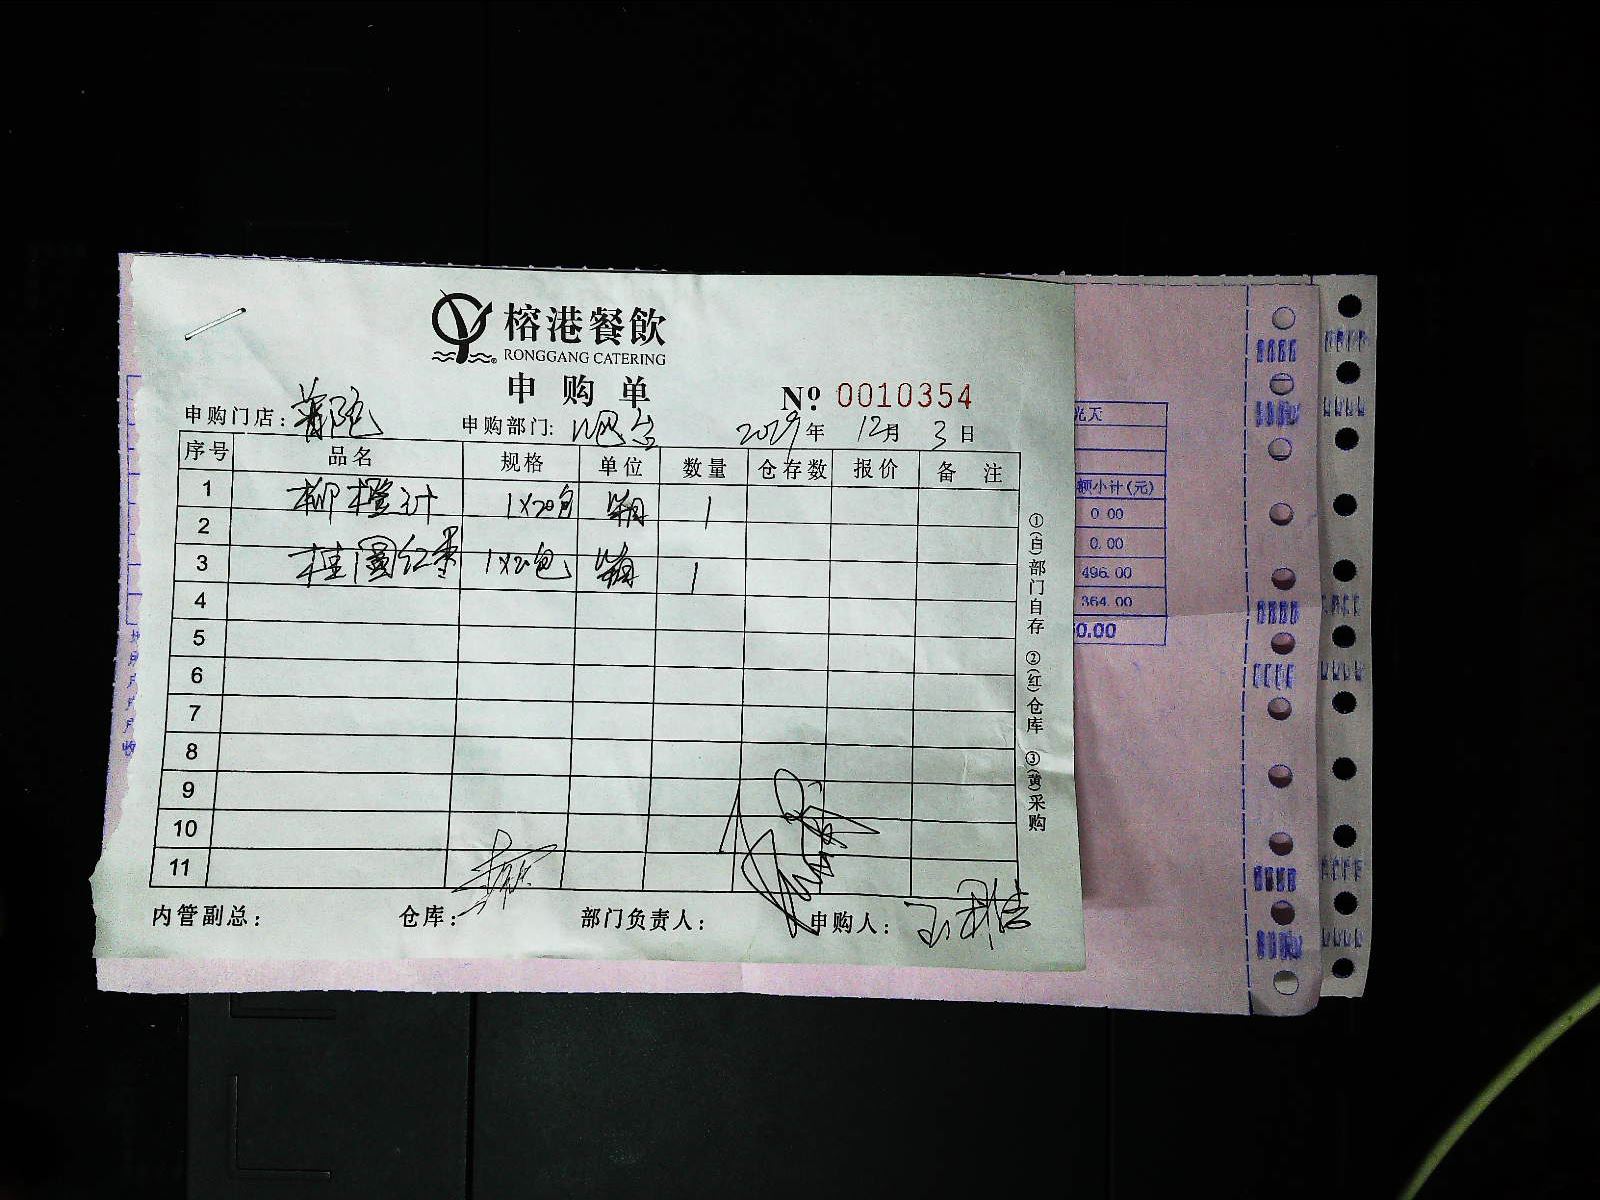 榕港餐飲
RONGGANG CATERING
申购单
№ 0010354
申购门店：普陀 申购部门：吧台 2029年 12月 3日
序号 品名 规格 单位 数量 仓存数 报价 备注
1 柳橙汁 1×20包 箱 1
2
3 桂圆红枣 1×20包 箱 1
4
5
6
7
8
9
10
11
内管副总： 仓库： 部门负责人： 申购人：
①(白)部门自存 ②(红)仓库 ③(黄)采购
额小计(元)
0.00
0.00
496.00
364.00
0.00